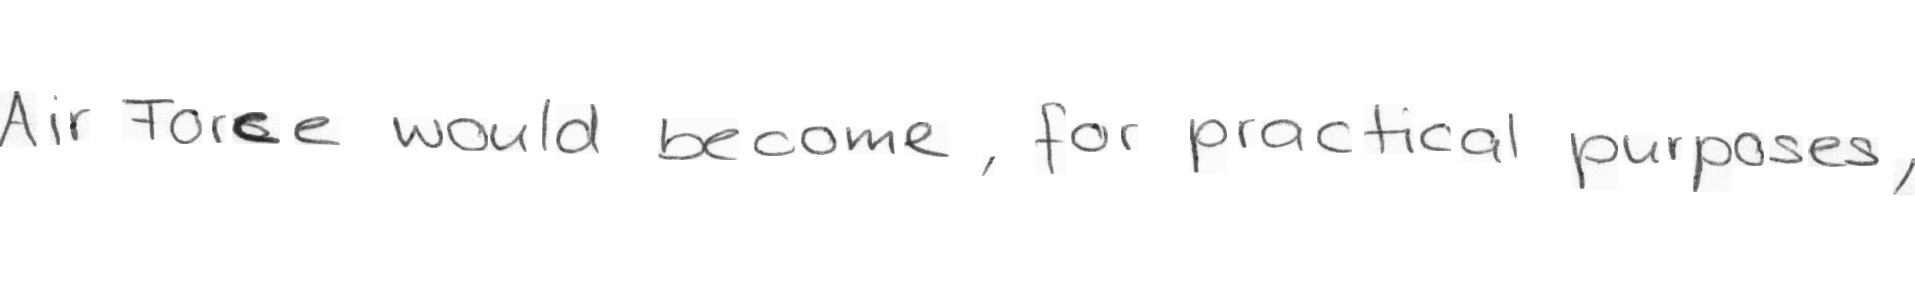 Air Force would become, for practical purposes,